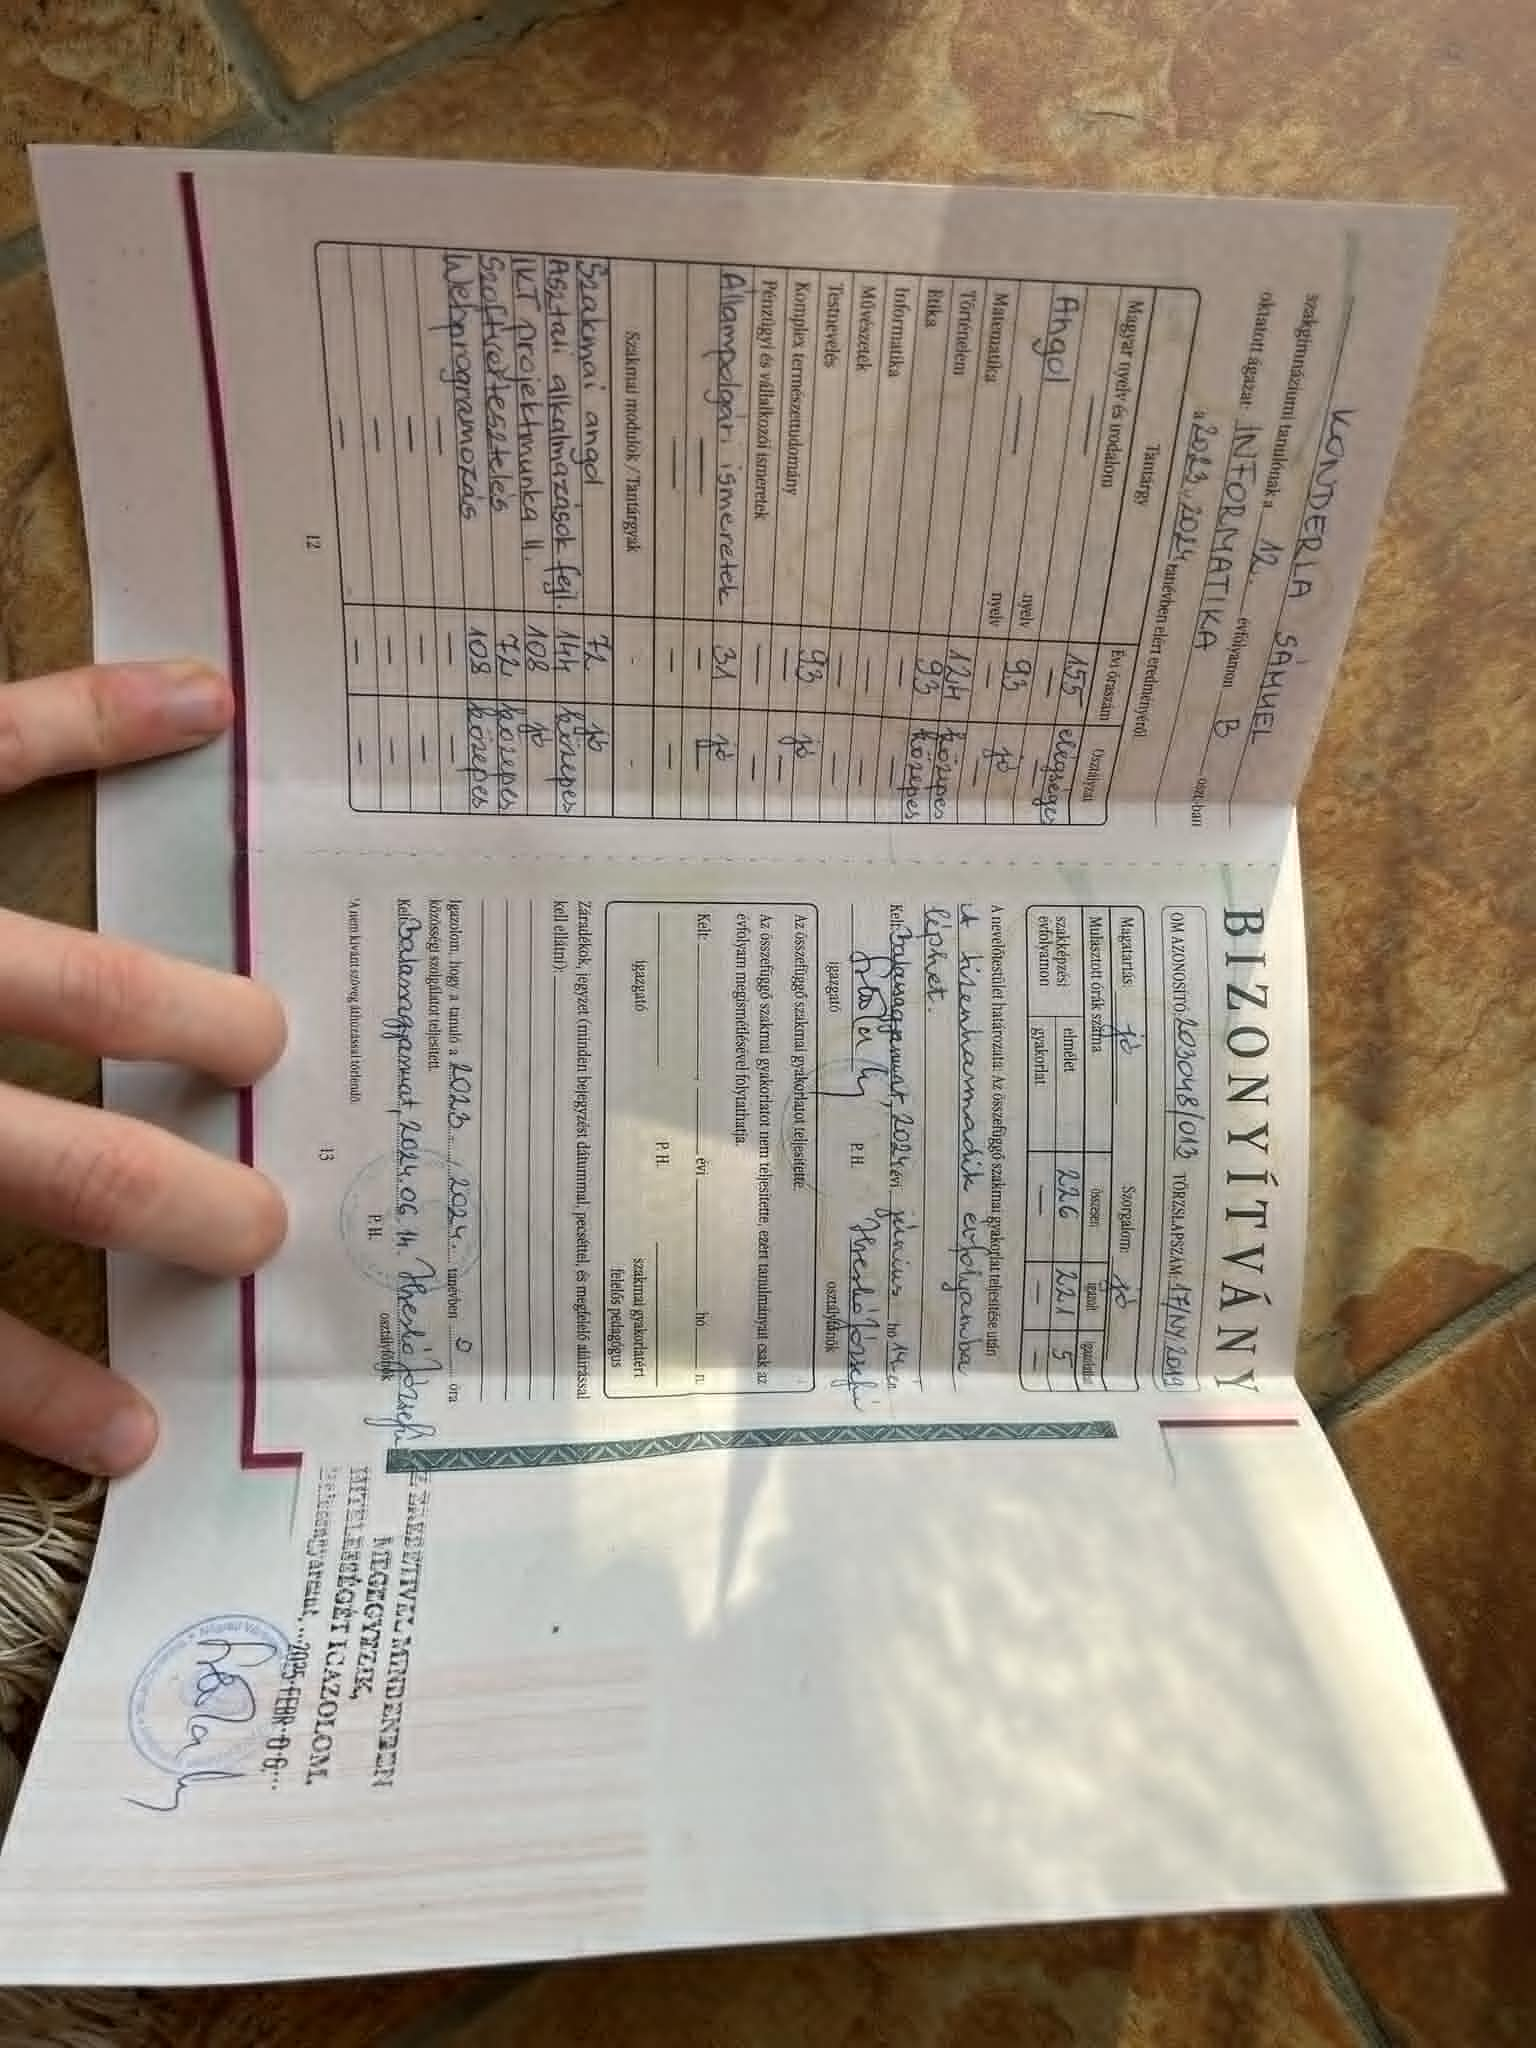 KONDERLA SÁMUEL
szakgimnáziumi tanulónak a 12. évfolyamon B oszt.-ban
oktatott ágazat: INFORMATIKA
a 2023/2024 tanévben elért eredményéről
Tantárgy Évi óraszám Osztályzat
Magyar nyelv és irodalom 155 elégséges
— — —
Angol nyelv 93 jó
— nyelv — —
Matematika 124 közepes
Történelem 93 közepes
Etika — —
Informatika — —
Művészetek — —
Testnevelés — —
Komplex természettudomány 93 jó
Pénzügyi és vállalkozói ismeretek — —
Állampolgári ismeretek 31 jó
— — —
— — —
Szakmai modulok / Tantárgyak - -
Szakmai angol 72 jó
Asztali alkalmazások fejl. 144 közepes
IKT projektmunka II. 108 jó
Szoftvertesztelés 72 közepes
Webprogramozás 108 közepes
— — —
— — —
— — —
— — —
12
BIZONYÍTVÁNY
OM AZONOSÍTÓ: 203048/013 TÖRZSLAPSZÁM: 17/NY/2019
Magatartás: jó Szorgalom: jó
Mulasztott órák száma összesen igazolt igazolatlan
szakképzési évfolyamon elmélet 226 221 5
gyakorlat — — —
A nevelőtestület határozata: Az összefüggő szakmai gyakorlat teljesítése után
A tizenharmadik évfolyamba
léphet.
Kelt: Balassagyarmat, 2024 évi június hó 14-én
igazgató P. H. osztályfőnök
Az összefüggő szakmai gyakorlatot teljesítette.
Az összefüggő szakmai gyakorlatot nem teljesítette, ezért tanulmányait csak az
évfolyam megismétlésével folytathatja.
Kelt: , évi hó n.
P. H.
igazgató szakmai gyakorlatért
felelős pedagógus
Záradékok, jegyzet (minden bejegyzést dátummal, pecséttel, és megfelelő aláírással
kell ellátni):
Igazolom, hogy a tanuló a 2023 / 2024 tanévben 0 óra
közösségi szolgálatot teljesített.
Kelt: Balassagyarmat, 2024. 06. 14.
P. H. osztályfőnök
*A nem kívánt szöveg áthúzással törlendő.
13
EREDETIVEL MINDENBEN
MEGEGYEZIK,
HITELESSÉGÉT IGAZOLOM.
Balassagyarmat, 2025 FEBR 06.